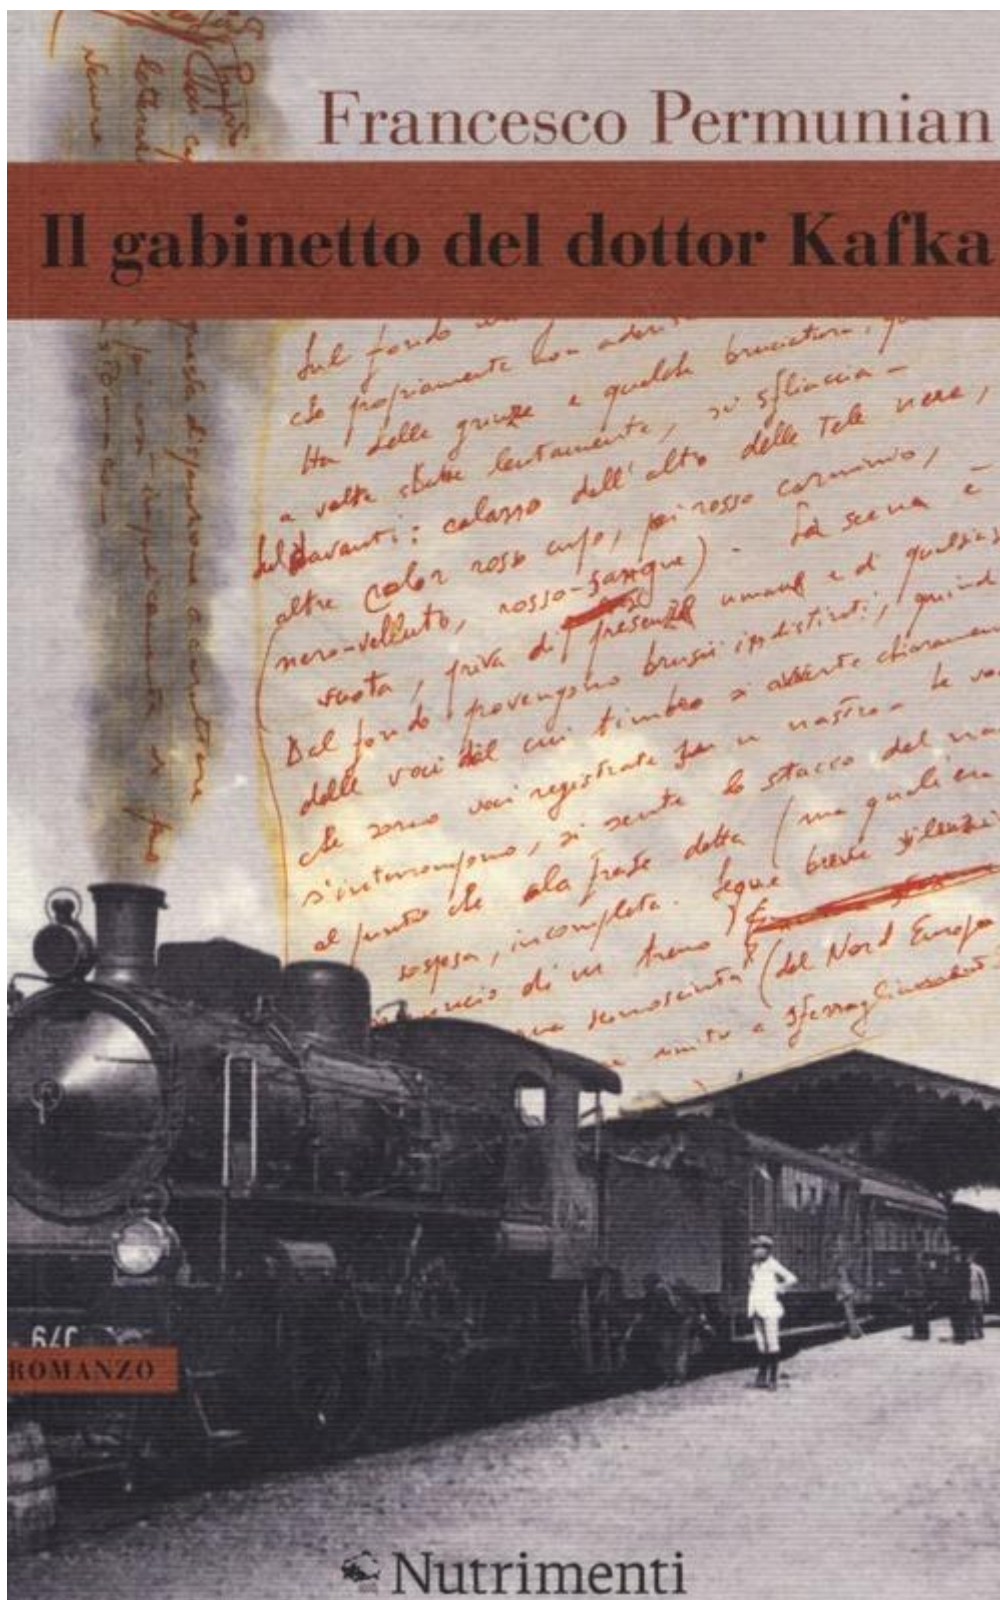 Francesco Permunian
Il gabinetto del dottor Kafka
Sul fondo
che propriamente non
Ha delle grinze e qualche bruciatura,
a volte sbatte lentamente, si sfilaccia -
Sul davanti: calano dall'alto delle tele nere,
altre color rosso cupo, poi rosso carminio,
nero-velluto, rosso-sangue) - La scena è
vuota, priva di presenze umane e di qualsias
Dal fondo provengono brusii indistinti, quind
delle voci dal cui timbro si avverte chiaramen
che sono voci registrate su un nastro - le vo
s'interrompono, si sente lo stacco del na
al punto che la frase detta (ma quali era
sospesa, incompleta. Segue breve silenzio
di un treno
sconosciuta (del Nord Europa
misto a sferragliamento
640
ROMANZO
Nutrimenti